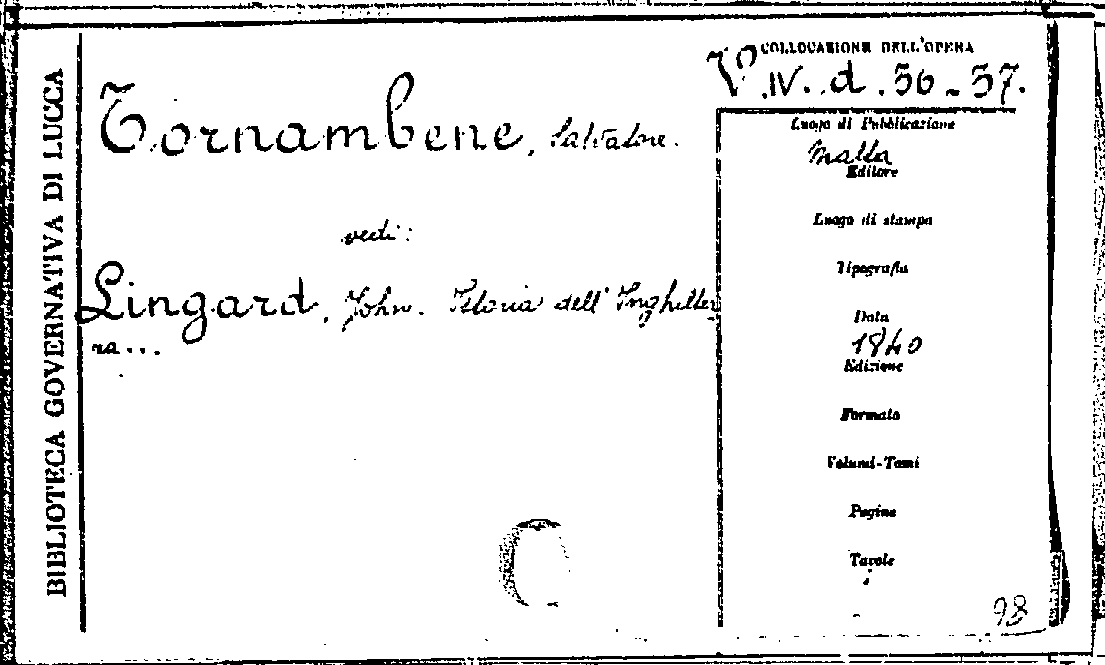 BIBLIOTECA GOVERNATIVA DI LUCCA
COLLOCAZIONE DELL'OPERA
V.IV.d.56-57.
Tornambene, Salvatore.
vedi:
Lingard, John. Istoria dell'Inghilter
ra...
Luogo di Pubblicazione
Malta
Editore
Luogo di stampa
Tipografia
Data
1840
Edizione
Formato
Volumi-Tomi
Pagine
Tavole
C
98